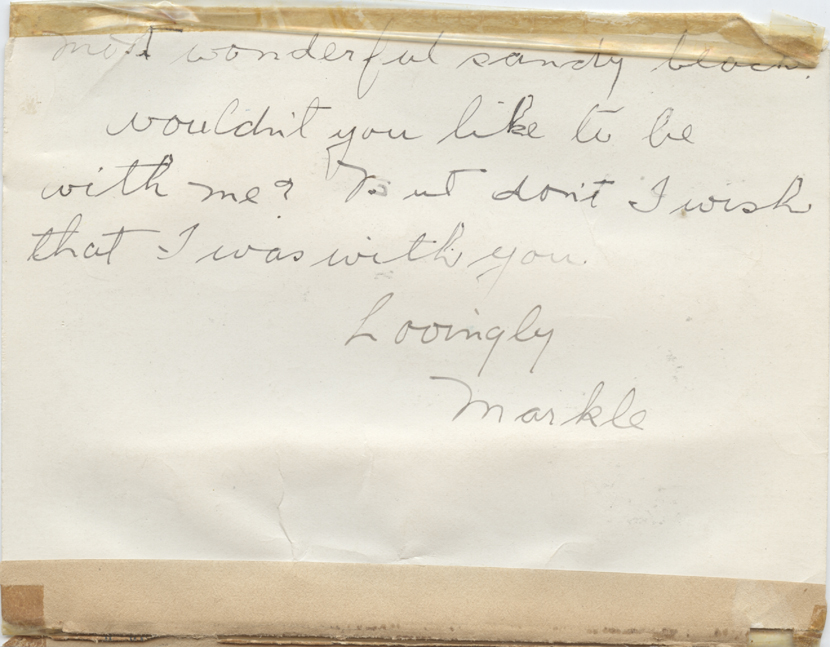 most wonderful sandy beach.
wouldn't you like to be
with me? But don't I wish
that I was with you.
Lovingly
Markle